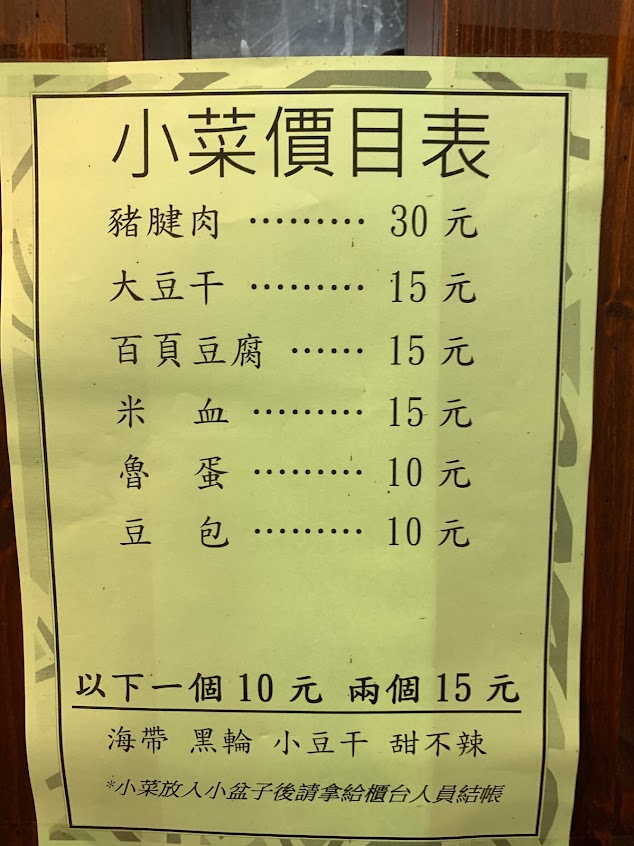 小菜價目表
豬腱肉 ⋯⋯⋯ 30 元
大豆干 ⋯⋯⋯ 15 元
百頁豆腐 ⋯⋯ 15 元
米 血 ⋯⋯⋯ 15 元
魯 蛋 ⋯⋯⋯ 10 元
豆 包 ⋯⋯⋯ 10 元
以下一個 10 元 兩個 15 元
海帶 黑輪 小豆干 甜不辣
*小菜放入小盆子後請拿給櫃台人員結帳